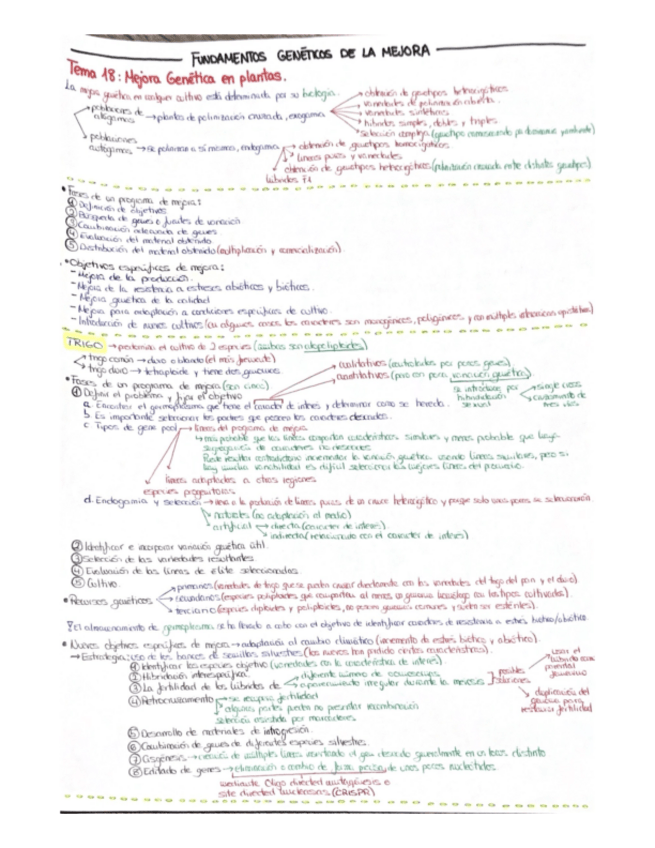 FUNDAMENTOS GENÉTICOS DE LA MEJORA
Tema 18: Mejora Genética en plantas.
La mejora genética en cualquier cultivo está determinada por su biología.
poblaciones de alógamas → plantas de polinización cruzada, exogamia
→ obtención de genotipos heterocigóticos
→ variedades de polinización abierta
→ variedades sintéticas
→ híbridos simples, dobles y triples
selección compleja (genotipo
poblaciones autógamas → se polinizan a sí mismas, endogamia
→ obtención de genotipos homocigóticos
→ líneas puras y variedades
obtención de genotipos heterocigóticos (polinización cruzada entre distintos genotipos)
híbridos F1
• Fases de un programa de mejora:
① Definición de objetivos
② Búsqueda de genes o fuentes de variación
③ Combinación adecuada de genes
④ Evaluación del material obtenido
⑤ Distribución del material obtenido (multiplicación y comercialización).
• Objetivos específicos de mejora:
- Mejora de la producción.
- Mejora de la resistencia a estreses abióticos y bióticos.
- Mejora genética de la calidad
- Mejora para adaptación a condiciones específicas de cultivo.
- Introducción de nuevos cultivos (en algunos casos los caracteres son monogénicos, poligénicos y con múltiples
TRIGO → predomina el cultivo de 2 especies (ambas son alopoliploides)
→ trigo común → duro o blando (el más frecuente)
→ trigo duro → tetraploide y tiene dos genomas
→ cualitativos (controlados por pocos genes)
→ cuantitativos (
variación genética)
se introduce por hibridación
→ single cross
→ cruzamiento de tres vías
• Fases de un programa de mejora (son cinco)
① Definir el problema y fijar el objetivo
a. Encontrar el germoplasma que tiene el carácter de interés y determinar como se hereda.
b. Es importante seleccionar los padres que poseen los caracteres deseados.
c. Tipos de gene pool → líneas del programa de mejora
↳ más probable que las líneas compartan características similares y menos probable que haya
segregación de caracteres no deseados
Puede resultar contradictorio incrementar la variación genética usando líneas similares, pero si
hay mucha variabilidad es difícil seleccionar las mejores líneas del proceso.
líneas adaptadas a otras regiones
especies progenitoras
d. Endogamia y selección →
la producción de líneas puras de un cruce heterocigótico y porque solo unas pocas se seleccionarán
→ naturales (no adaptación al medio)
→ artificial
→ directa (carácter de interés)
→ indirecta (relacionado con el carácter de interés)
② Identificar e incorporar variación genética útil.
③ Selección de las variedades resultantes
④ Evaluación de las líneas de élite seleccionadas.
⑤ Cultivo.
• Recursos genéticos
→ primarios (variedades de trigo que se pueden cruzar directamente con las variedades del trigo del pan y el duro)
→ secundarios (especies poliploides que comparten al menos un genoma homólogo con los tipos cultivados).
→ terciario (especies diploides y poliploides, no poseen genomas comunes y suelen ser estériles).
El almacenamiento de germoplasma se ha llevado a cabo con el objetivo de identificar caracteres de resistencia a estrés biótico/abiótico.
• Nuevos objetivos específicos de mejora → adaptación al cambio climático (incremento de estrés biótico y abiótico).
→ Estrategia: uso de los bancos de semillas silvestres (los nuevos han perdido ciertas características).
① Identificar las especies objetivo (variedades con la característica de interés)
② Hibridación interespecífica
③ La fertilidad de los híbridos de
→ diferente número de cromosomas
→ apareamiento irregular durante la meiosis
posibles soluciones
→ usar el híbrido como parental femenino
→ duplicación del genoma para restaurar fertilidad
④ Retrocruzamiento → se recupera fertilidad
→ algunas partes pueden no presentar recombinación
selección asistida por marcadores
⑤ Desarrollo de materiales de introgresión.
⑥ Combinación de genes de diferentes especies silvestres.
⑦ Cisgénesis →
de múltiples líneas insertando el gen deseado generalmente en un locus distinto
⑧ Editado de genes → eliminación o cambio de
de unos pocos nucleótidos
mediante Oligo directed mutagenesis o
site directed nucleases (CRISPR)